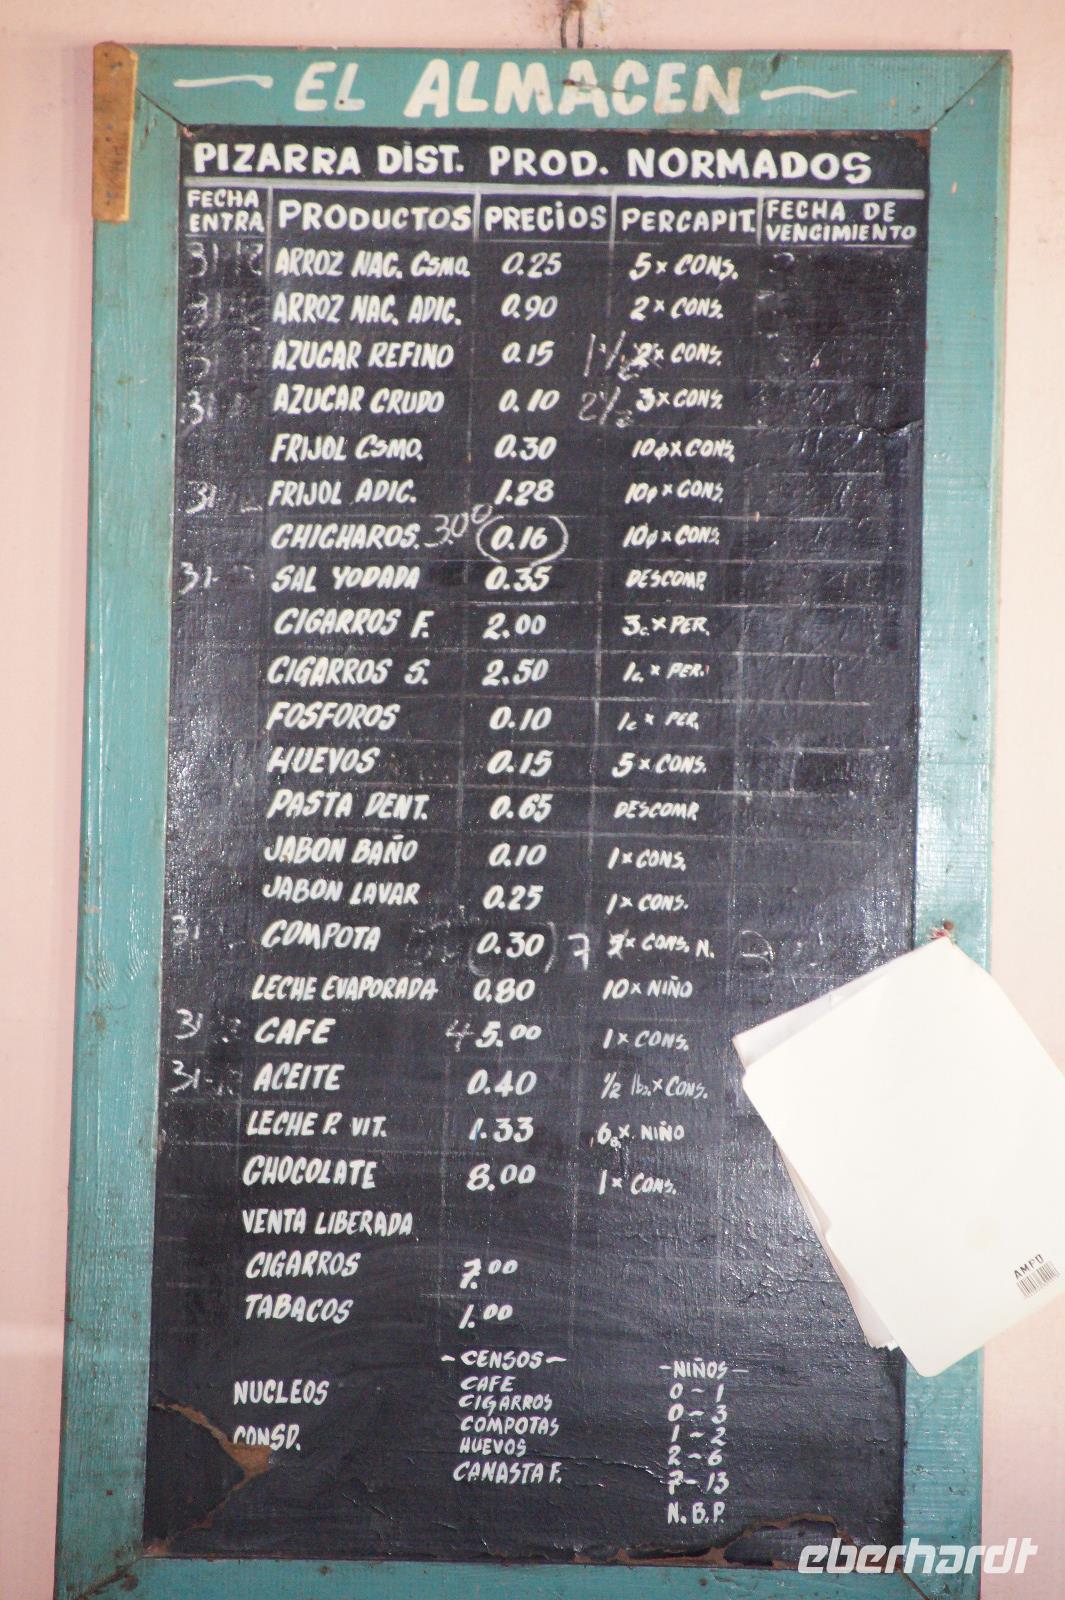 EL ALMACEN
PIZARRA DIST. PROD. NORMADOS
FECHA ENTRA PRODUCTOS PRECIOS PERCAPIT. FECHA DE VENCIMIENTO
31-12 ARROZ NAC. CSMO. 0.25 5 x CONS.
31- ARROZ NAC. ADIC. 0.90 2 x CONS.
AZUCAR REFINO 0.15 1 1/2 2 x CONS.
31- AZUCAR CRUDO 0.10 2 1/2 3 x CONS.
FRIJOL CSMO. 0.30 10φ x CONS.
31- FRIJOL ADIC. 1.28 10φ x CONS.
CHICHAROS. 300 0.16 10φ x CONS.
31- SAL YODADA 0.35 DESCOMP.
CIGARROS F. 2.00 3c. x PER.
CIGARROS S. 2.50 1c. x PER.
FOSFOROS 0.10 1c x PER.
HUEVOS 0.15 5 x CONS.
PASTA DENT. 0.65 DESCOMP.
JABON BAÑO 0.10 1 x CONS.
JABON LAVAR 0.25 1 x CONS.
31 COMPOTA 0.30 7 x CONS. N.
LECHE EVAPORADA 0.80 10 x NIÑO
31- CAFE 4 5.00 1 x CONS.
31- ACEITE 0.40 1/2 lbs. x CONS.
LECHE P. VIT. 1.33 6 x. NIÑO
CHOCOLATE 8.00 1 x CONS.
VENTA LIBERADA
CIGARROS 7.00
TABACOS 1.00
- CENSOS - - NIÑOS -
NUCLEOS CAFE 0 - 1
CIGARROS 0 - 3
CONSD. COMPOTAS 1 - 2
HUEVOS 2 - 6
CANASTA F. 7 - 13
N.B.P.
AMPO
eberhardt